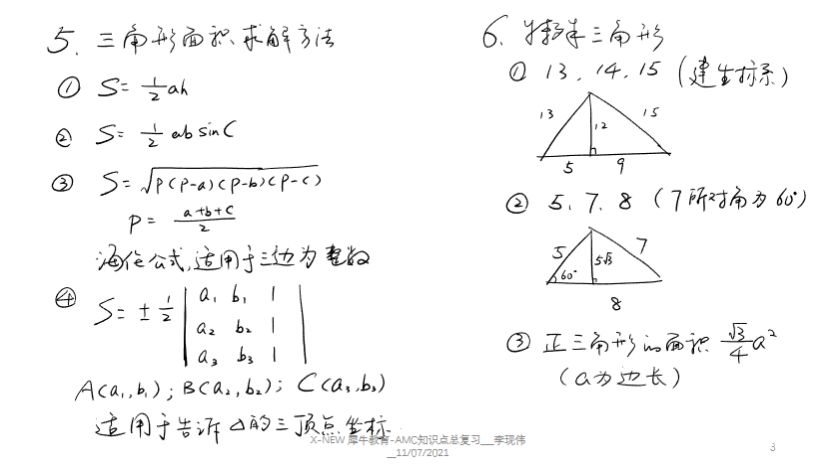 5. 三角形面积求解方法
① S= 1/2 ah
② S= 1/2 ab sinC
③ S= √P(P-a)(P-b)(P-c)
P= a+b+c/2
海伦公式,适用于三边为整数
④ S= ± 1/2 | a₁ b₁ 1 |
| a₂ b₂ 1 |
| a₃ b₃ 1 |
A(a₁,b₁); B(a₂,b₂); C(a₃,b₃)
适用于告诉△的三顶点坐标.
6. 特殊三角形
① 13, 14, 15 (建坐标系)
13 12 15
5 9
② 5, 7, 8 (7所对角为60°)
5 5√3 7
60°
8
③ 正三角形的面积 √3/4 a²
(a为边长)
X-NEW 犀牛教育-AMC知识点总复习__李现伟
__11/07/2021
3